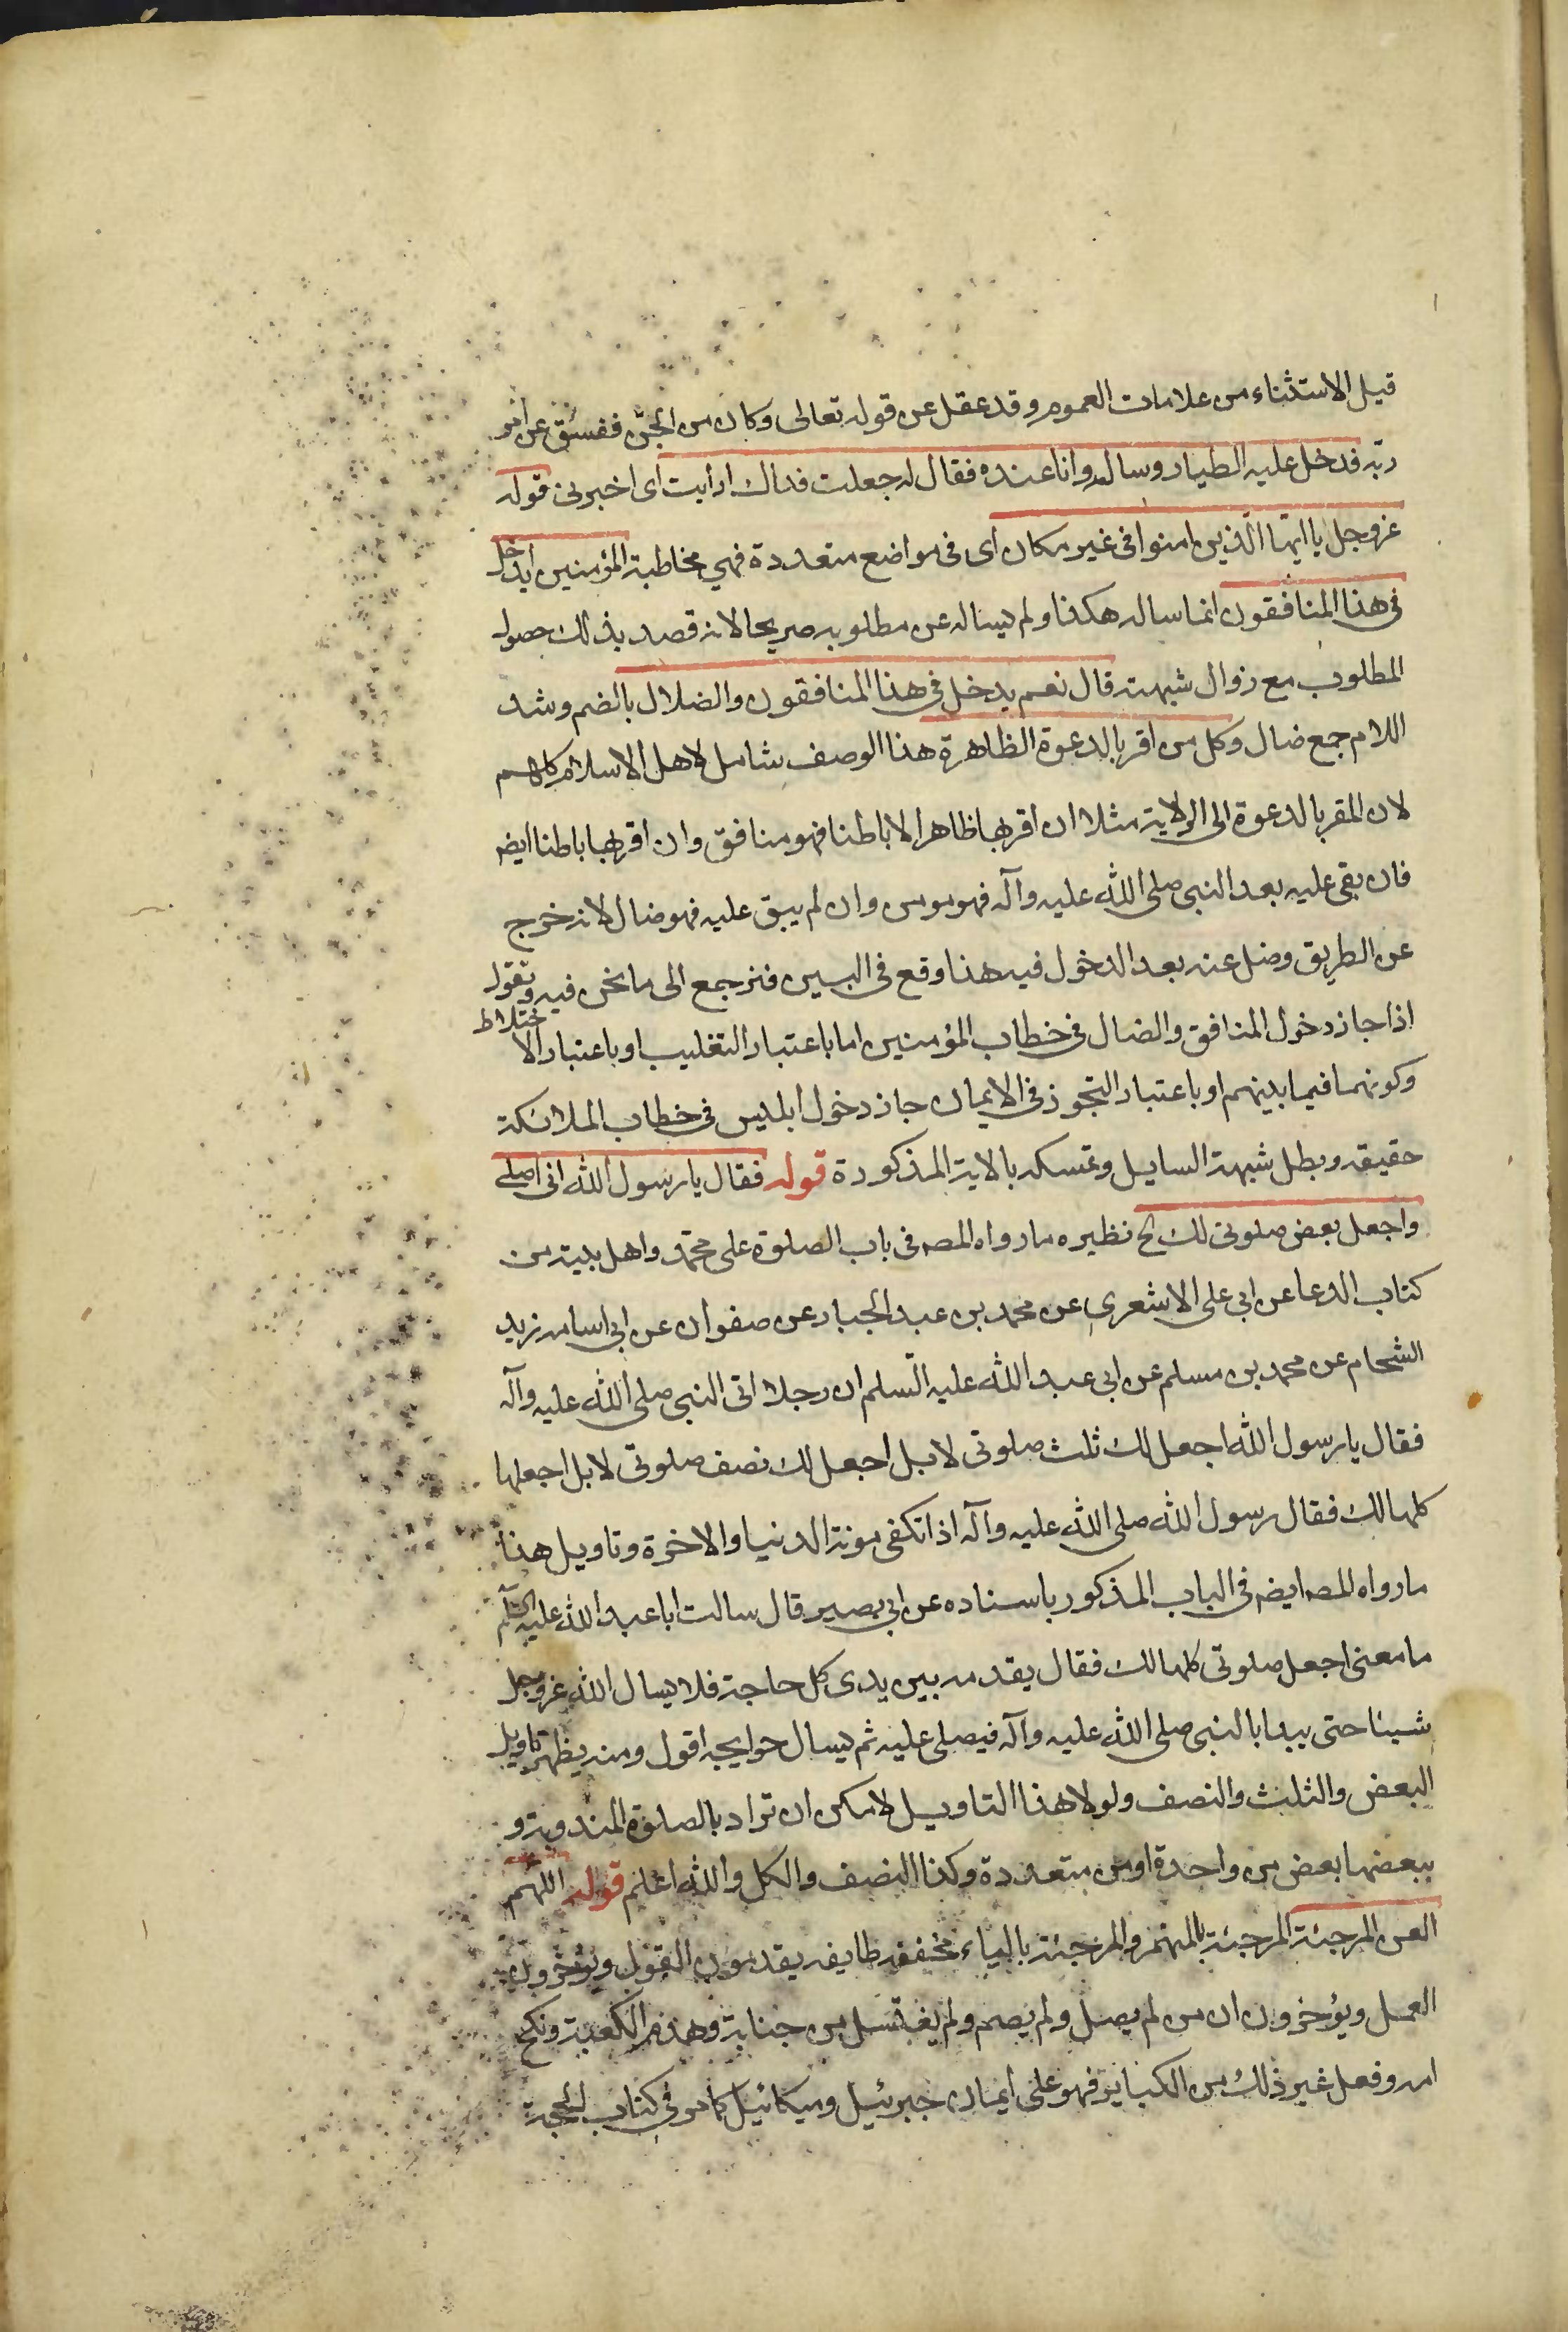 قيل الاستثناء من علامات العموم وقد عقل عن قوله تعالى وكان من الجن ففسق عن امر
ربه فدخل عليه الطيار وساله وانا عنده فقال له جعلت فداك ارايت اى اخبرنى قوله
عز وجل يا ايها الذين امنوا فى غير مكان اى فى مواضع متعددة فهى مخاطبة المؤمنين ايدخل
فى هذا المنافقون انما ساله هكذا ولم يساله عن مطلوبه صريحا لانه قصد بذلك حصول
المطلوب مع زوال شبهته قال نعم يدخل فى هذا المنافقون والضلال بالضم وشد
اللام جمع ضال وكل من اقر بالدعوة الظاهرة هذا الوصف شامل لاهل الاسلام كلهم
لان المقر بالدعوة الى الولاية مثلا ان اقر بها ظاهرا لا باطنا فهو منافق وان اقر بها باطنا ايضا
فان بقى عليه بعد النبى صلى الله عليه وآله فهو مومن وان لم يبق عليه فهو ضال لانه خرج
عن الطريق وضل عنه بعد الدخول فيه هذا وقع فى البين فنرجع الى ما نحن فيه ونقول
اذا جاز دخول المنافق والضال فى خطاب المؤمنين اما باعتبار التغليب او باعتبار الاختلاط
وكونهما فيما بينهم او باعتبار التجوز فى الايمان جاز دخول ابليس فى خطاب الملائكة
حقيقه وبطل شبهة السايل وتمسكه بالاية المذكورة قوله فقال يا رسول الله انى اصلى
واجعل بعض صلوتى لك الخ نظيره ما رواه المصه فى باب الصلوة على محمد واهل بيته من
كتاب الدعا عن ابى على الاشعرى عن محمد بن عبد الجبار عن صفوان عن ابى اسامه زيد
الشحام عن محمد بن مسلم عن ابى عبد الله عليه السلم ان رجلا اتى النبى صلى الله عليه وآله
فقال يا رسول الله اجعل لك ثلث صلوتى لا بل اجعل لك نصف صلوتى لا بل اجعلها
كلها لك فقال رسول الله صلى الله عليه وآله اذا تكفى مونة الدنيا والاخرة وتاويل هذا
ما رواه المصه ايضا فى الباب المذكور باسناده عن ابى بصير قال سالت ابا عبد الله عليه السلم
ما معنى اجعل صلوتى كلها لك فقال يقدمه بين يدى كل حاجة فلا يسال الله عز وجل
شيئا حتى يبدا بالنبى صلى الله عليه وآله فيصلى عليه ثم يسال حوايجه اقول ومنه يظهر تاويل
البعض والثلث والنصف ولولا هذا التاويل لامكن ان تراد بالصلوة المندوبة و
ببعضها بعض من واحدة او من متعددة وكذا النصف والكل والله اعلم قوله اللهم
العن المرجئة المرجئة بالهمز والمرجئة بالياء مخففه طايفه يقدمون القول ويؤخرون
العمل ويؤخرون ان من لم يصل ولم يصم ولم يغتسل من جنابة وهدم الكعبة ونكح
امه وفعل غير ذلك من الكباير فهو على ايمان جبرئيل وميكائيل كما مر فى كتاب الحجة